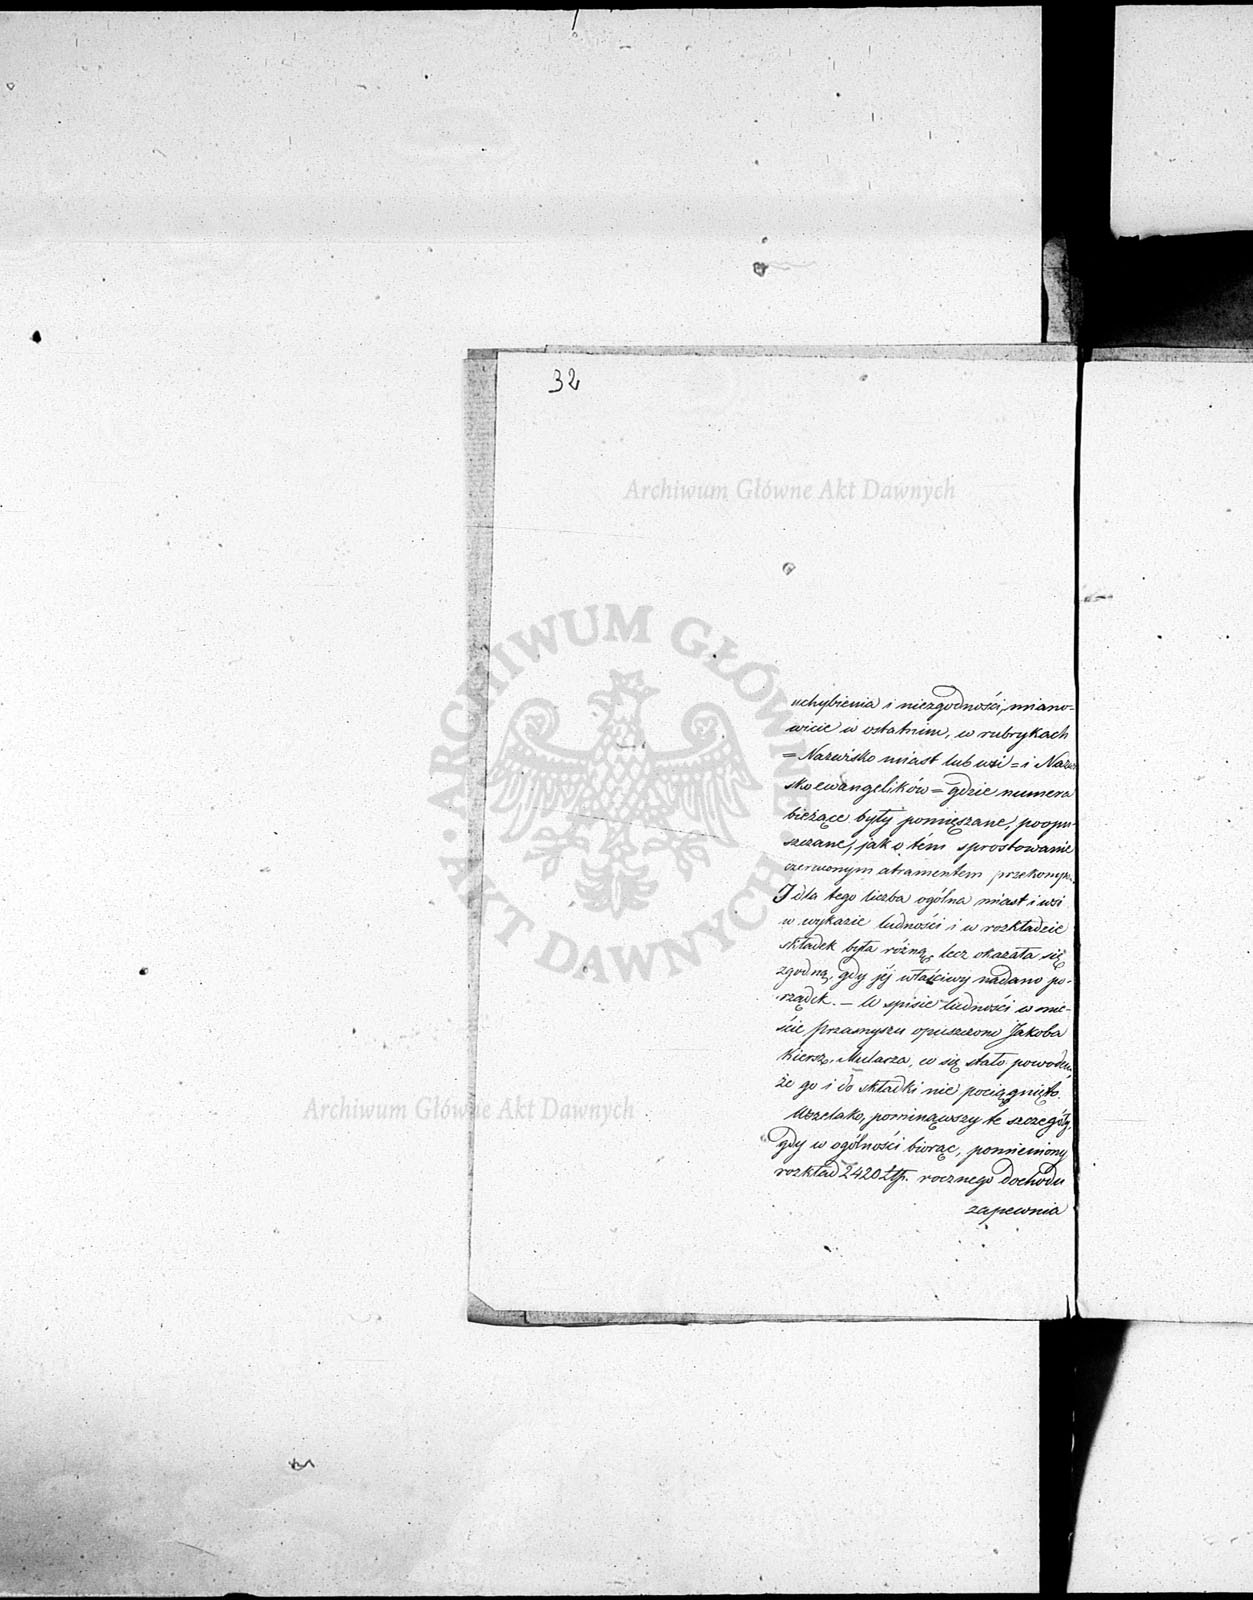 32
uchybienia i niezgodności, miano-
wicie w ostatnim, w rubrykach
= Nazwisko miast lub wsi = i Nazwi
sko ewangelików = gdzie numera
bieżące były pomięszane, poopu-
szczane, jak o tém sprostowanie
czerwonym atramentem przekonywa.
I dla tego liczba ogólna miast i wsi
w wykazie ludności i w rozkładzie
składek była różną, lecz okazała się
zgodną, gdy jéj właściwy nadano po-
rządek. — W spisie ludności w mie-
ście Przasnyszu opuszczono Jakoba
Kiersz, Mularza, co się stało powodem
że go i do składki nie pociągnięto.
Wszelako, pominąwszy te szczegóły,
gdy w ogólności biorąc, pomieniony
rozkład 2420 Złp. rocznego dochodu
zapewnia
Archiwum Główne Akt Dawnych
ARCHIWUM GŁÓWNE AKT DAWNYCH
Archiwum Główne Akt Dawnych